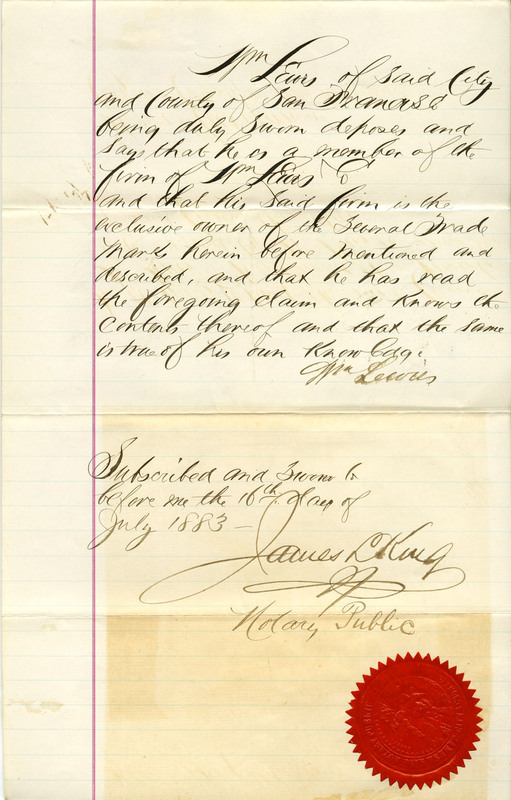 Wm Lewis of Said City
and County of San Francisco
being duly Sworn deposes and
Says that he is a member of the
firm of Wm Lewis & Co
and that his Said firm is the
exclusive owner of the Several Trade
Marks herein before mentioned and
described, and that he has read
the foregoing claim and Knows the
contents thereof and that the same
is true of his own Knowledge.
Wm Lewis
Subscribed and Sworn to
before me the 16th day of
July 1883 -
James L King
Notary Public